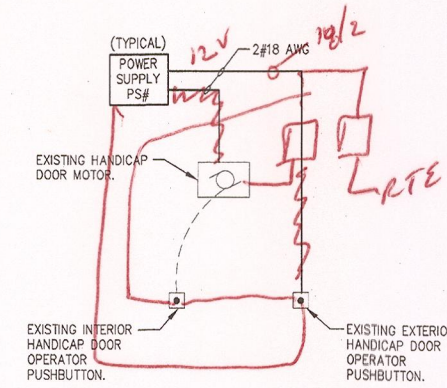 (TYPICAL)
POWER
SUPPLY
PS#
12V
2#18 AWG
18/2
EXISTING HANDICAP
DOOR MOTOR.
RTE
EXISTING INTERIOR
HANDICAP DOOR
OPERATOR
PUSHBUTTON.
EXISTING EXTERIO
HANDICAP DOOR
OPERATOR
PUSHBUTTON.